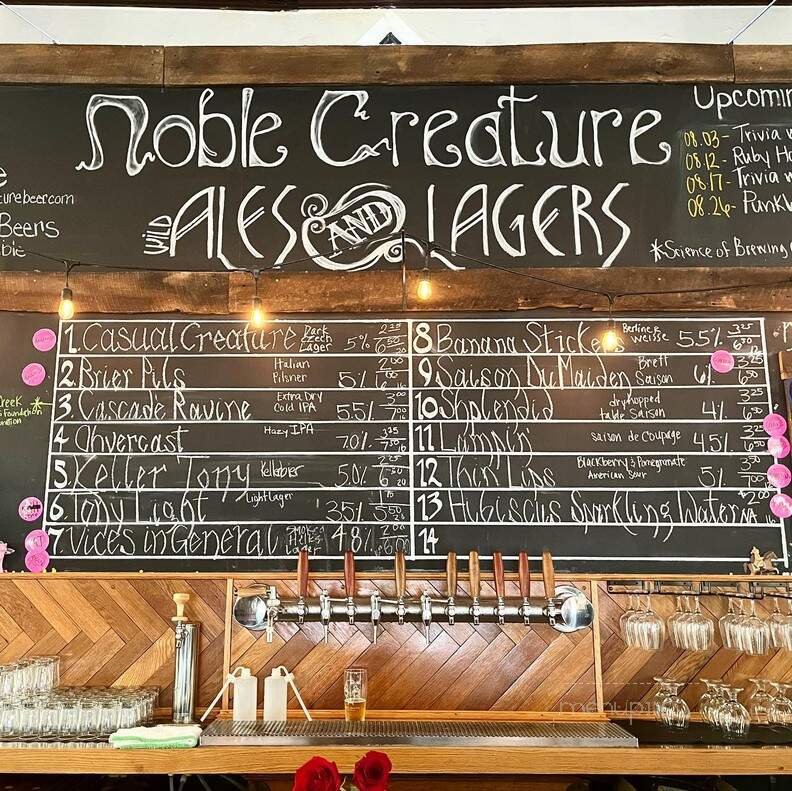 Noble Creature
WILD ALES AND LAGERS
urebeer.com
Beers
Upcomin
08.03 - Trivia w
08.12 - Ruby Ho
08.17 - Trivia w
08.26 - Punk
*Science of Brewing
1. Casual Creature Dark Czech Lager 5%
2. Brier Pils Italian Pilsner 5%
3. Cascade Ravine Extra Dry Cold IPA 5.5%
4. Ohvercast Hazy IPA 7.0%
5. Keller Tony Kellerbier 5.0%
6. Tony Light Light Lager 3.5%
7. Vices in General Smoked Helles Lager 4.8%
8. Banana Stickers Berliner Weisse 5.5% 3.25
9. Saison DuMaiden Brett Saison 6% 3.25
10. Shplendid dryhopped table saison 4% 3.25
11. Lampin' saison de coupage 4.5% 3.25
12. Thin Lips Blackberry & Pomegranate American Sour 5% 3.50
13 Hibiscus Sparkling Water NA
14
Creek
menupix